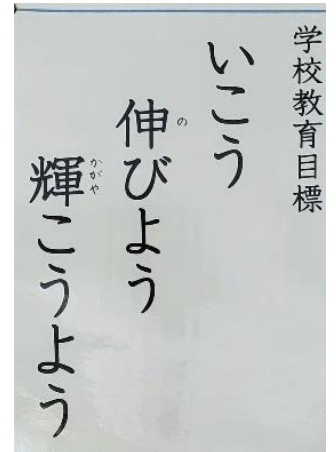 学校教育目標
いこう
伸びよう
輝こうよう